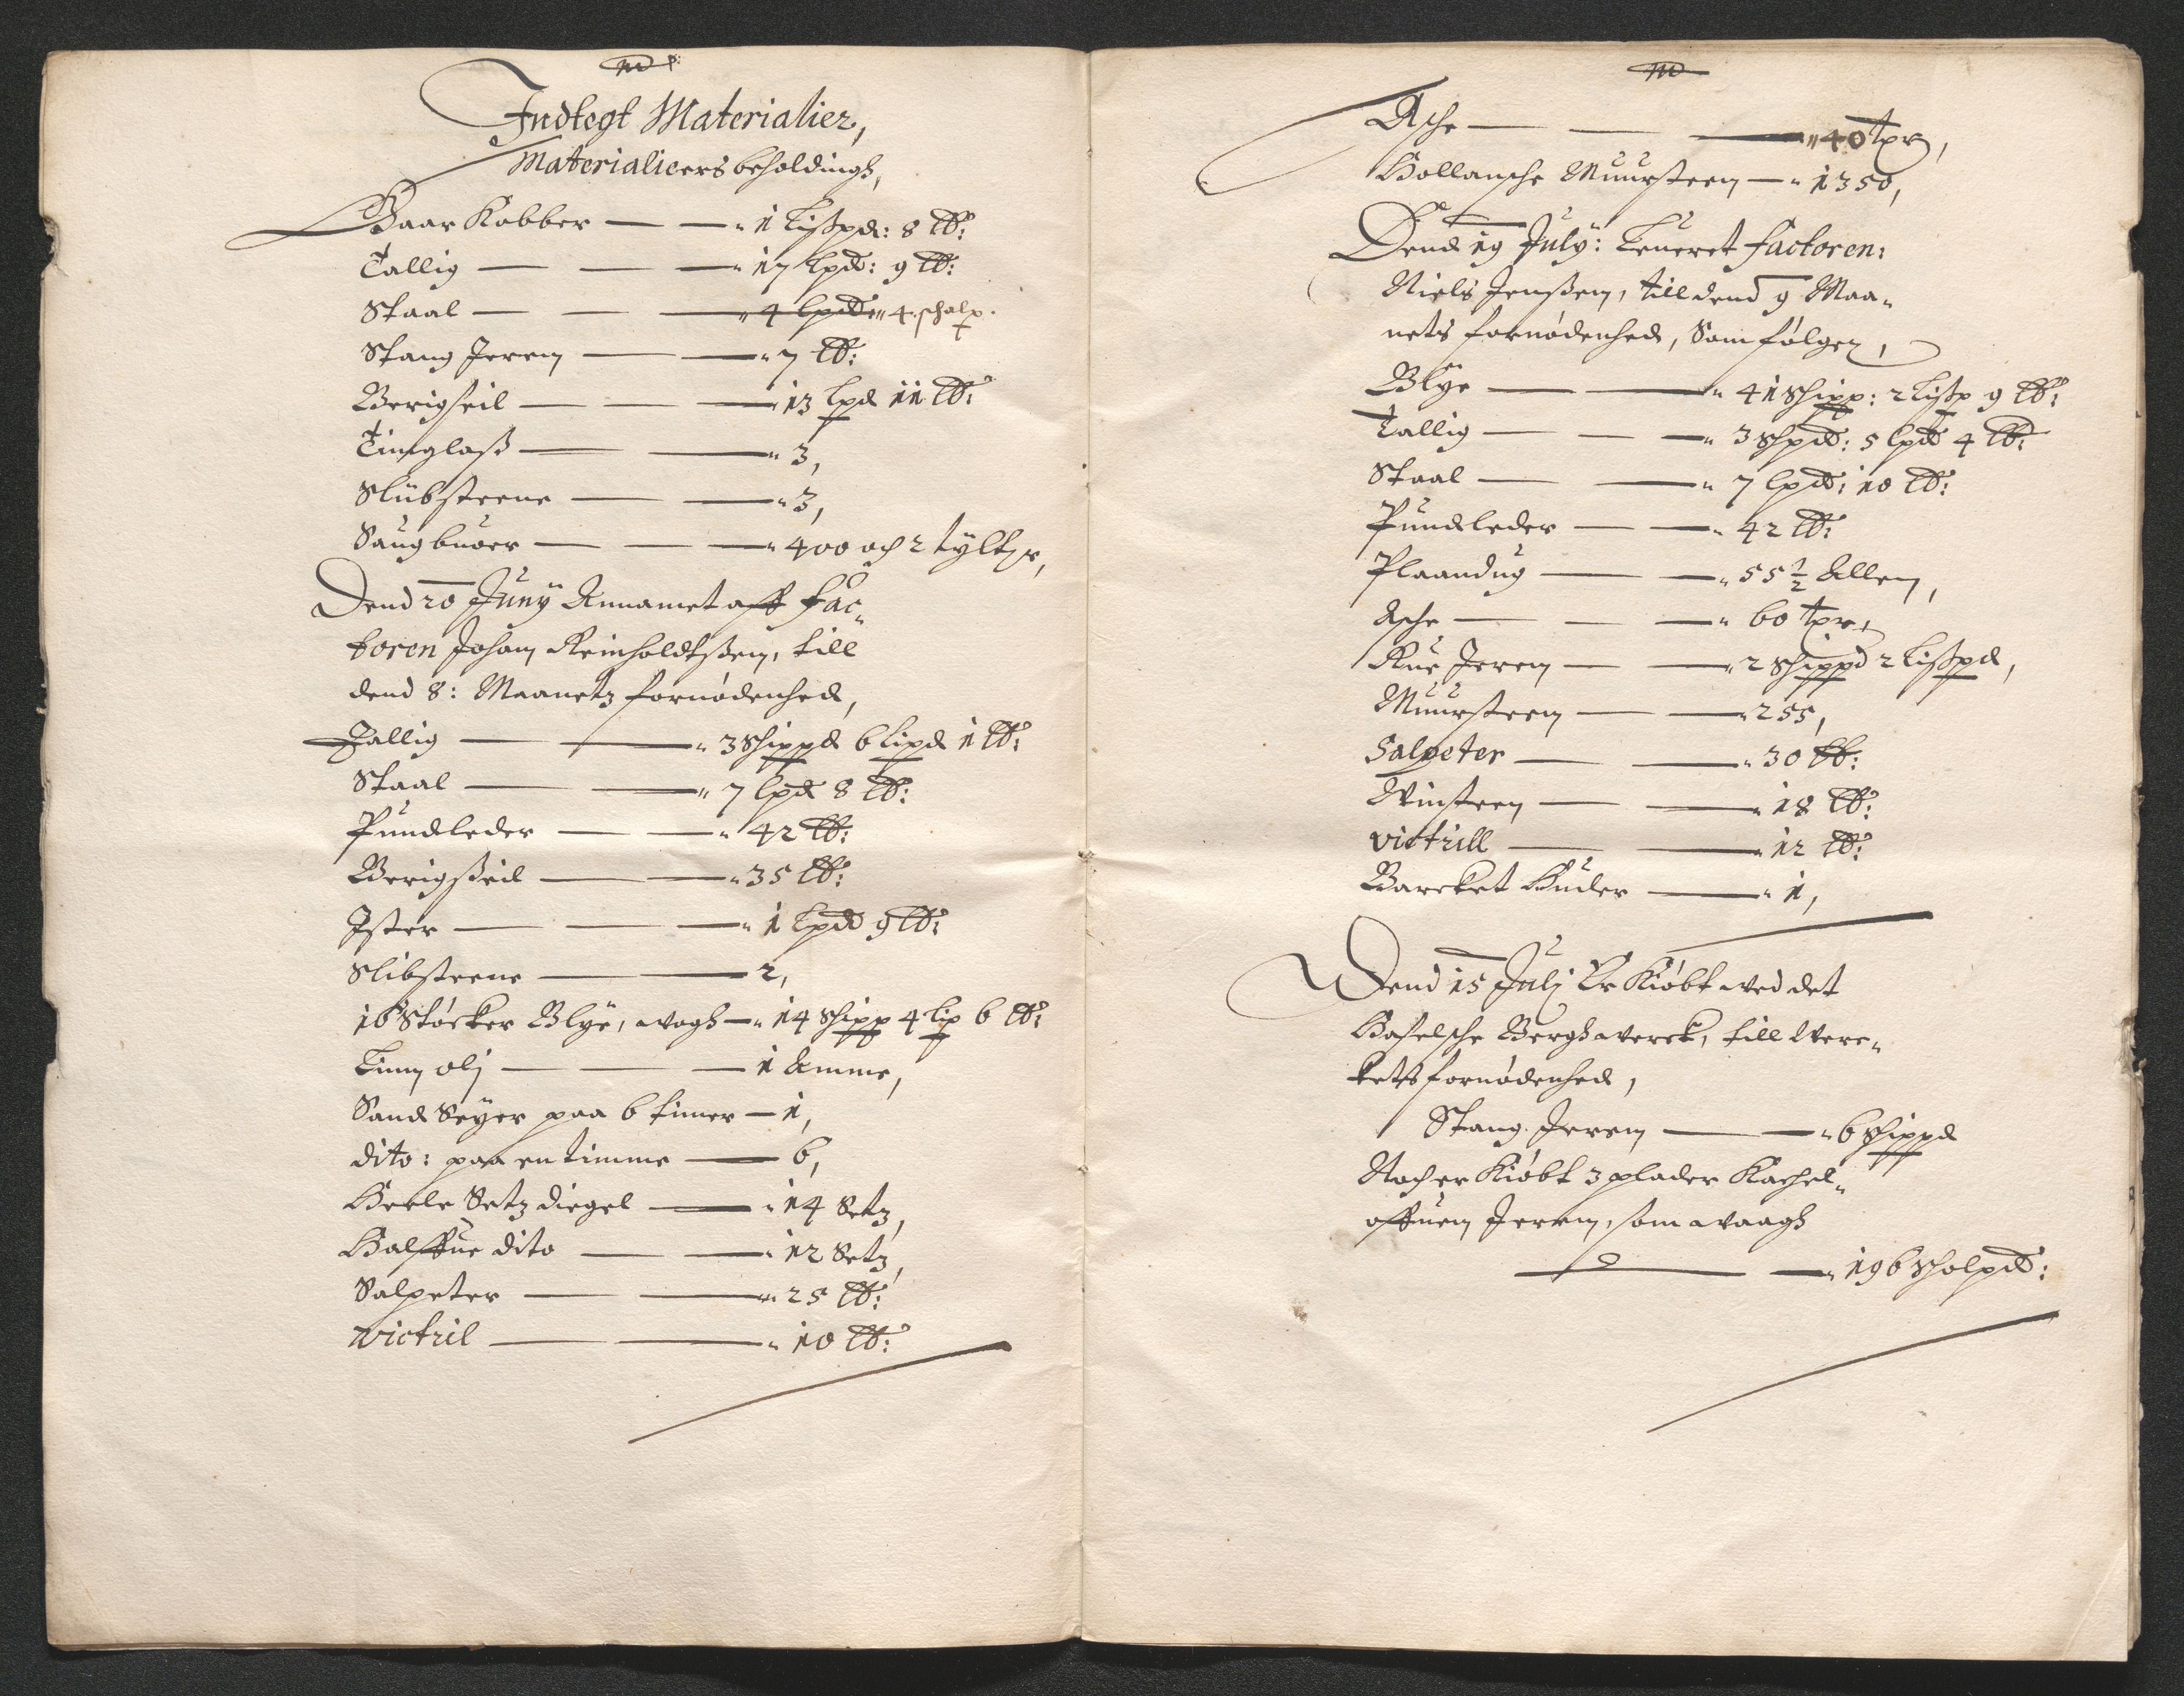 Indtegt Materialier,
Materialieers beholdingh,
Gaar Kobber — — 1 Lißpd: 8 ℔:
Tallig — — — 17 lpd: 9 ℔:
Staal — — 4 lpd: 4. schalp.
Stang Jeren — — 7 ℔:
Berigseil — — 13 lpd 11 ℔:
Timglaß — — 3,
Slübsteene — — 3,
Saugbuoer — — — 400 och 2 tylter,
Dend 20 Juny Annamet aff Fac„
toren Johan Reinholdtßen, till
dend 8: Maanetz fornødenhed,
Tallig — — 3 Shippd 6 Lipd 1 ℔:
Staal — — 7 lpd 8 ℔:
Pundleder — — 42 ℔:
Berigßeil — — 35 ℔:
Ister — — — 1 lpd 9 ℔:
Slibsteene — — 2,
16 Støcker Blye, wogh — 14 Shipp 4 Lip 6 ℔:
Linn olj — — — 1 Amme,
Sand Seyer paa 6 timer — 1,
dito: paa en timme — 6,
Heele Setz diegel — 14 Setz,
Halffue dito — — 12 Setz,
Salpeter — — 25 ℔:
victril — — 10 ℔:
Asche — — — 40 tpr,
Hollansche Muursteen — 1350,
Dend 19 July: Leueret Factoren:
Niels Jenßen, till dend 9 Maa„
nets fornødenhed, Som følger,
Blye — — 41 Shipp: 2 Lißp 9 ℔:
Tallig — — — 3 Shpd: 5 lpd 4 ℔:
Staal — — 7 lpd: 10 ℔:
Pundleder — — 42 ℔:
Plaandug — — 55 ½ Allen,
Asche — — — 60 tpr,
Rue Jeren — — 2 Shippd 2 Lißpd,
Muursteen — — 255,
Salpeter — — 30 ℔:
Winsteen — — 18 ℔:
victrill — — 12 ℔:
Barcket Huder — 1,
Dend 15 Julj Er Kiøbt ved det
Hafelsche Berghwerck, till Werc„
ketts fornødenhed,
Stang. Jeren — — 6 Shippd
Noch er Kiøbt 3 plader Kachel„
offuen Jeren, som waagh
— — 196 Skolpd: